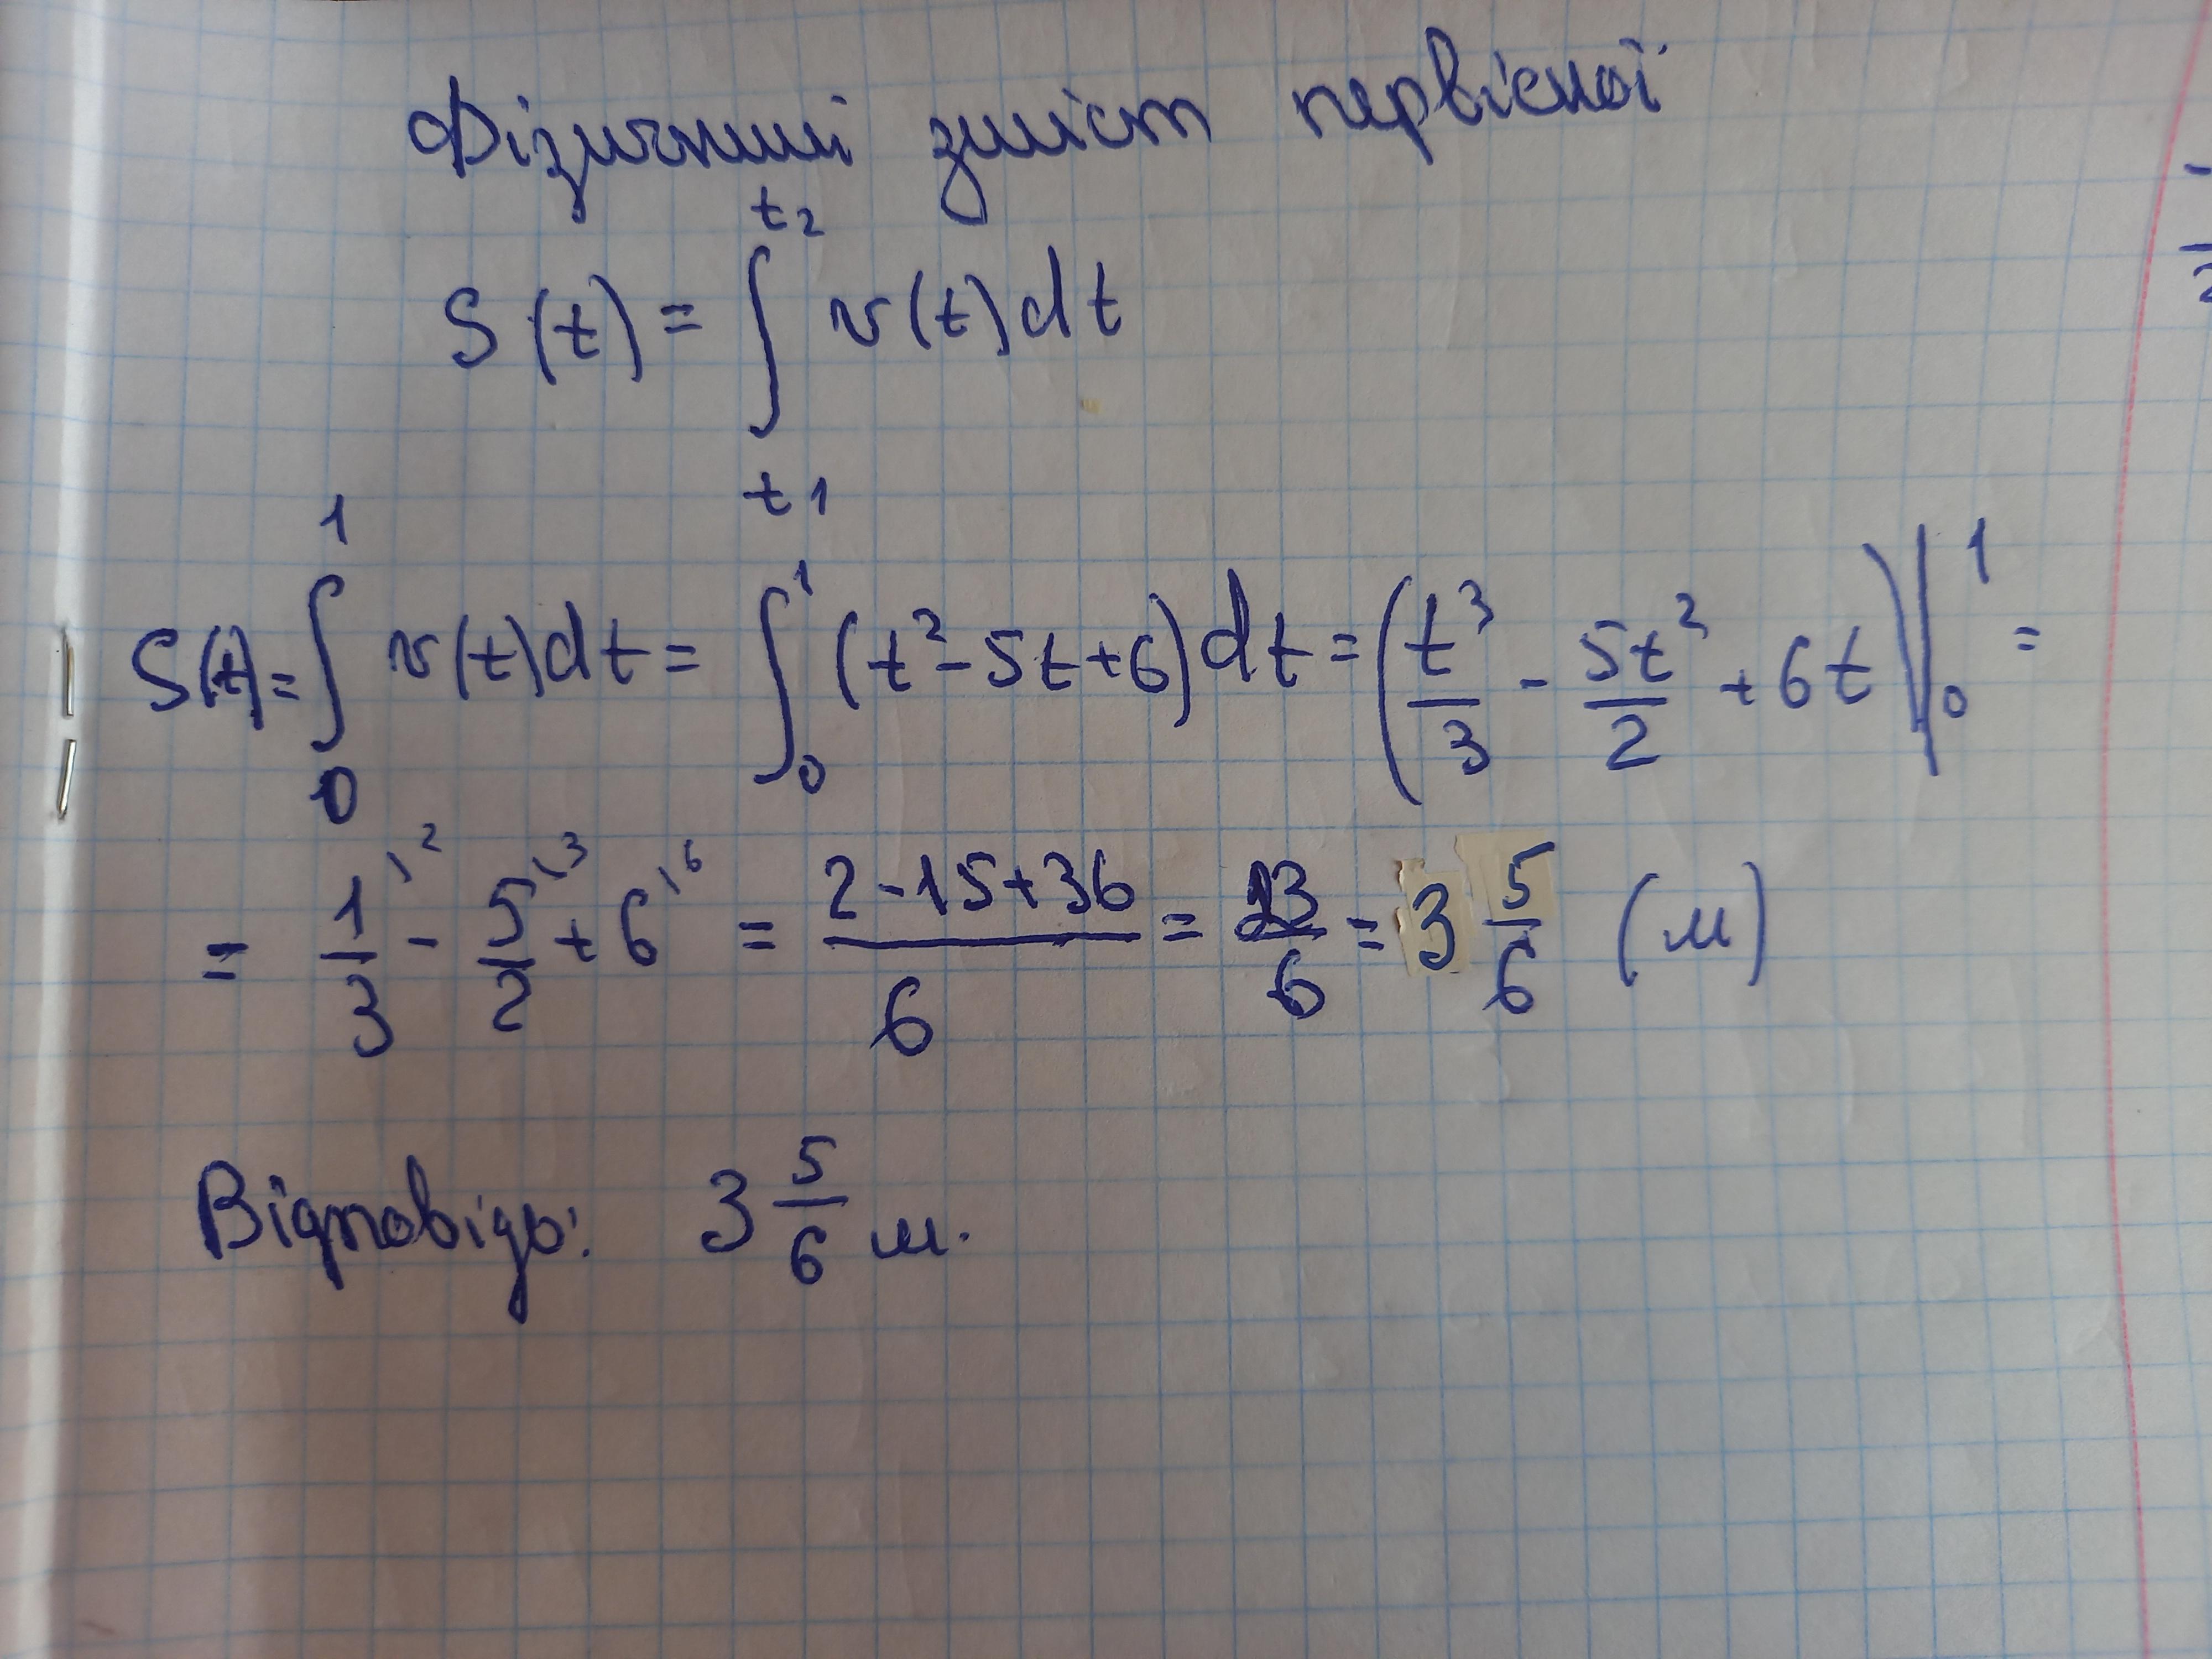 Фізичний зміст первісної
S(t) = ∫_{t1}^{t2} v(t)dt
S(t) = ∫_0^1 v(t)dt = ∫_0^1 (t² - 5t + 6)dt = (t³/3 - 5t²/2 + 6t)|_0^1 =
= 1/3^{\2} - 5/2^{\3} + 6^{\6} = (2 - 15 + 36)/6 = 23/6 = 3 5/6 (м)
Відповідь: 3 5/6 м.